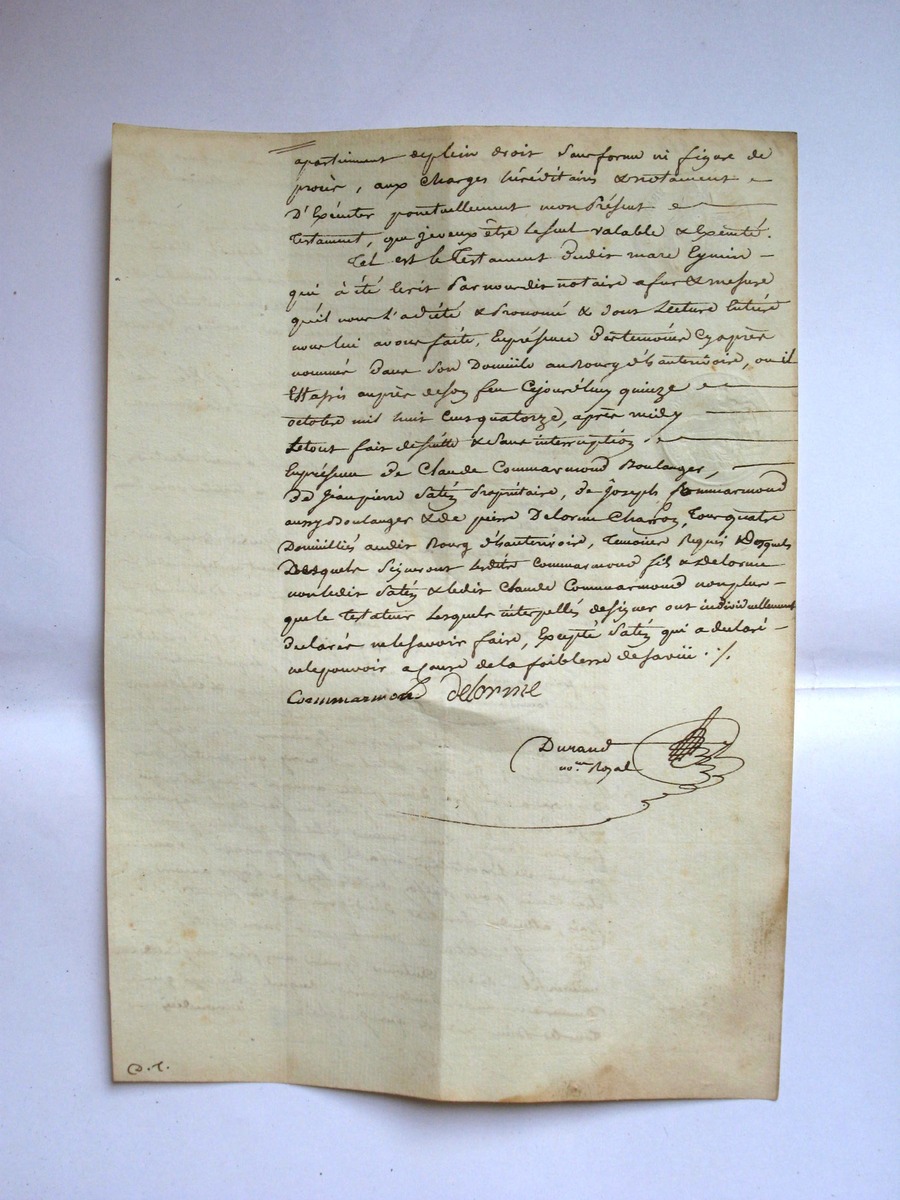 apartiennent de plein droit sans forme ni figure de
procès, aux charges héréditaires & notament
D'Exécuter ponctuellement mon Présent
Testament, que je veux être le seul valable & Exécuté.
Tel est le Testament dudit marc Eymin
qui à été Ecrit Par nous dit notaire a fur & mesure
qu'il nous l'a dicté & Prononcé & dont Lecture Entière
nous lui avons faite, En présence des témoins Cy après
nommés dans son Domicile au Bourg d'hauterivoire, ou il
Est assis auprès de son feu Cejourd'huy quinze
octobre mil huit Cent quatorze, après midy
Le tout fait de suitte & sans interruption
En présence de Claude Commarmond Boulanger,
de Jean pierre Satin Propriétaire, de Joseph Commarmond
aussy Boulanger & de pierre Delorme Charron, Tous quatre
Domiciliés audit Bourg d'hauterivoire, Temoins Requis & Desquels
Desquels Signeront lesdits Commarmond fils & delorme
non ledit Satin & ledit Claude Commarmond non plus
que le testateur Lesquels interpellés de signer ont individuellement
declarés ne le savoir faire, Excepté Satin qui a declaré
ne le pouvoir a Cause de la foiblesse de sa vüe ./.
Commarmond delorme
Durand
no.re Royal